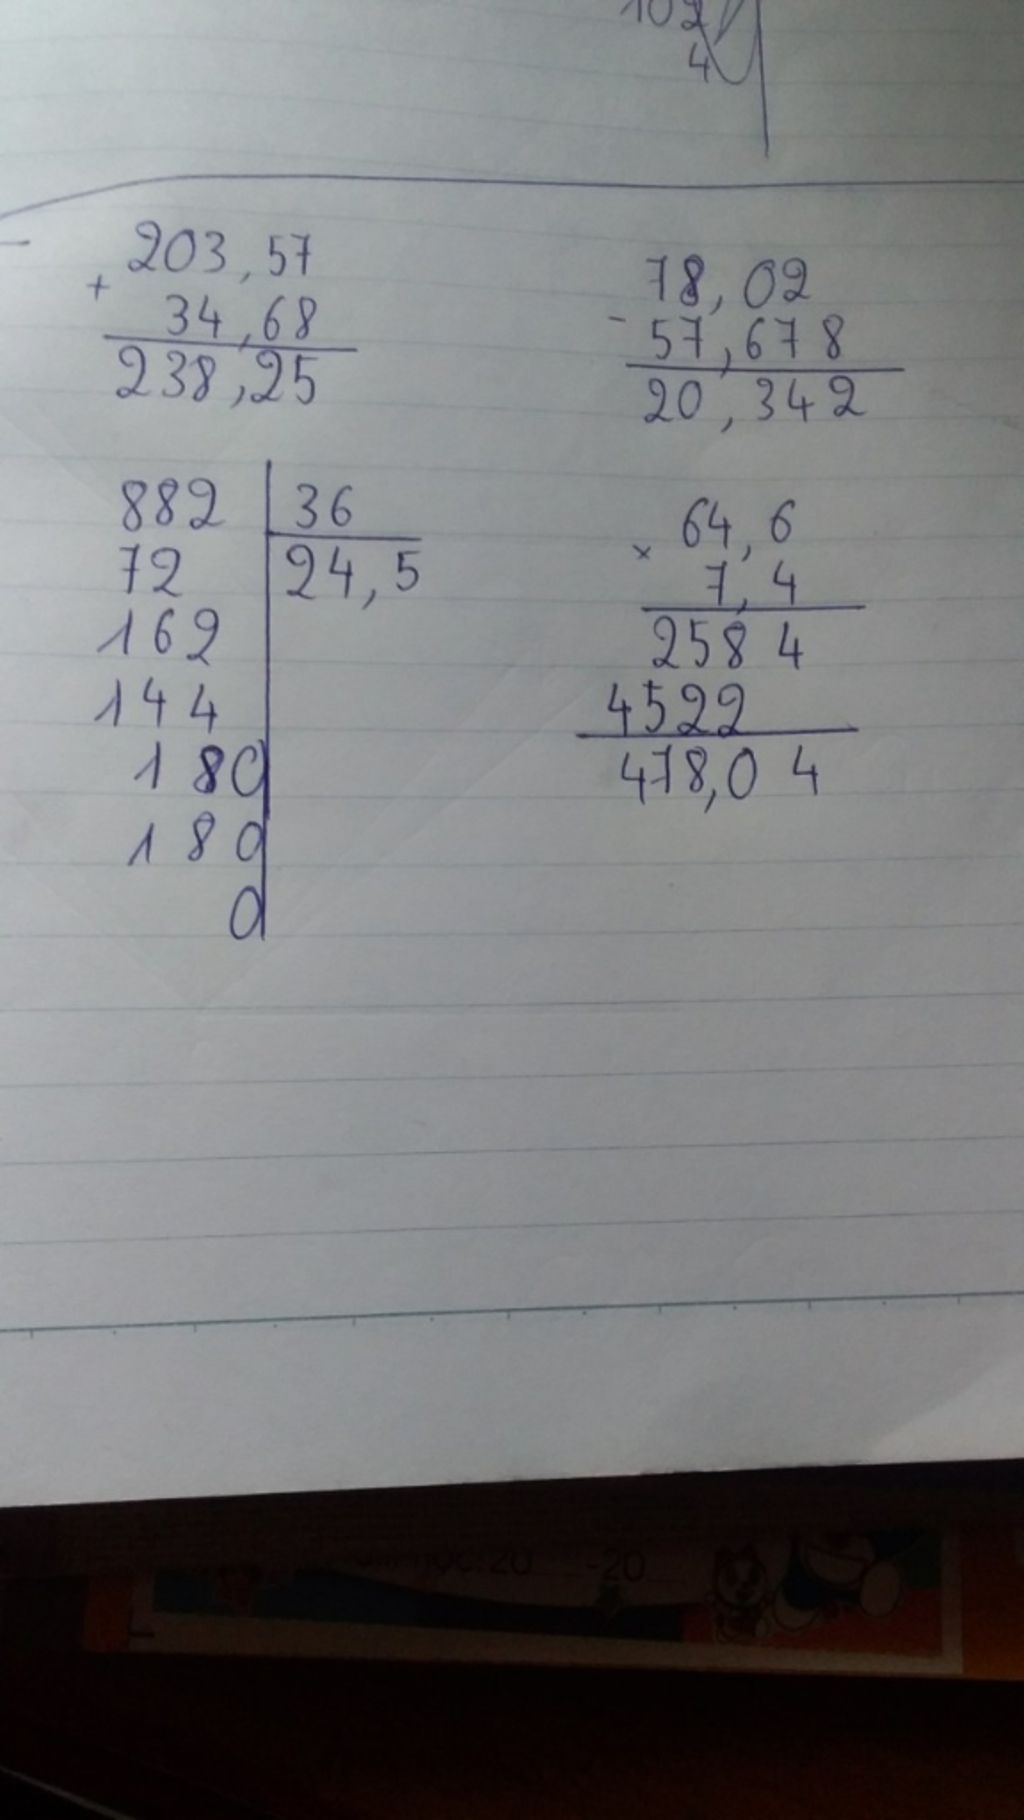 102
4
203,57
+
34,68
238,25
78,02
-
57,678
20,342
882 36
72 24,5
162
144
180
180
0
64,6
×
7,4
2584
4522
478,04
20 -20